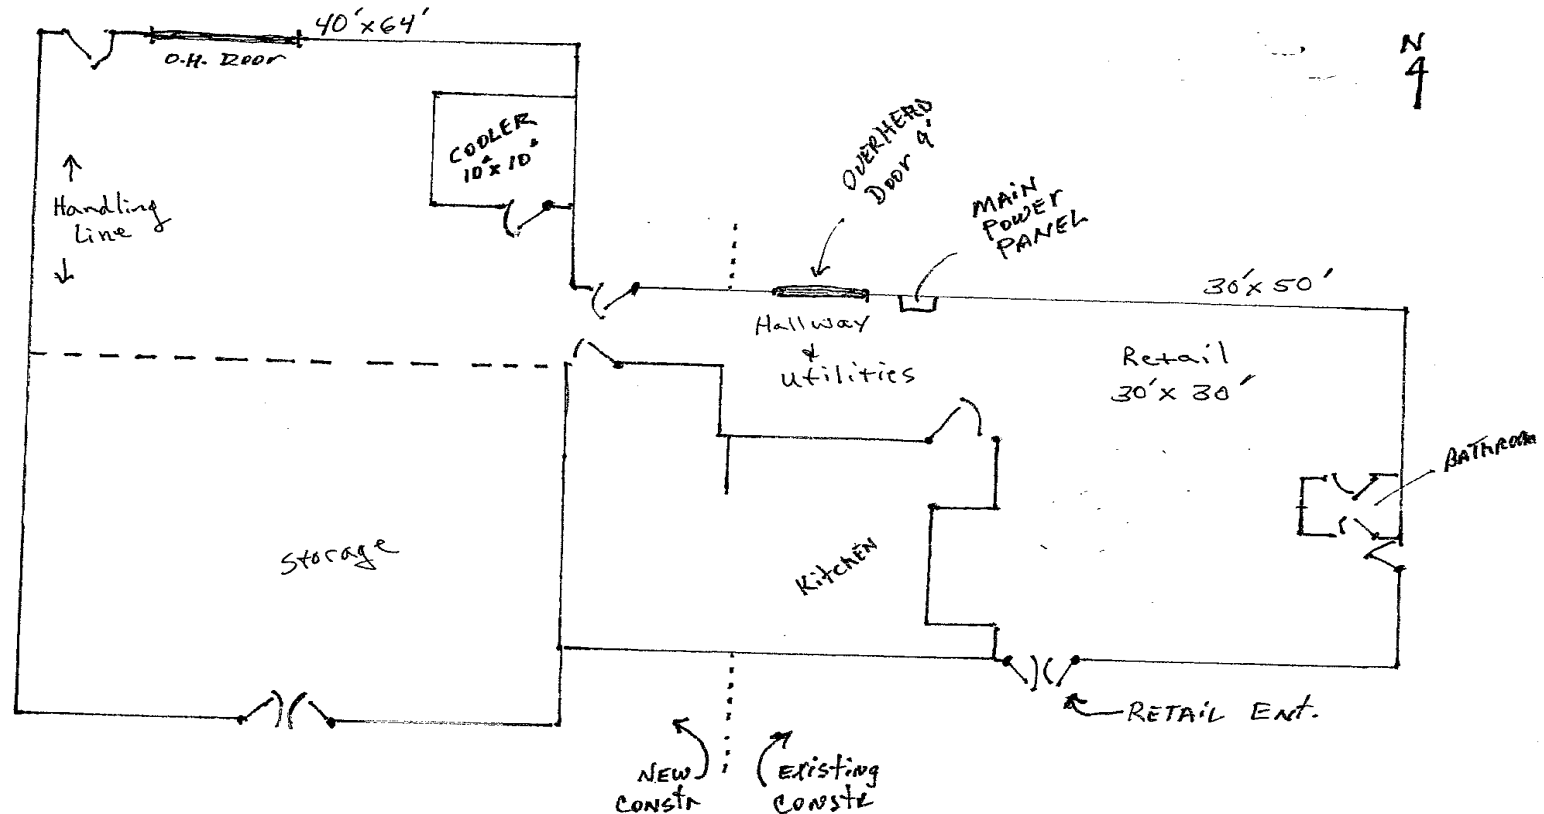 40'x64'
O.H. Door
N
COOLER
10'x10'
OVERHEAD
Door 9'
MAIN
POWER
PANEL
Handling
Line
30'x50'
Hallway
&
utilities
Retail
30'x30'
BATHROOM
Storage
KitchEN
RETAIL Ent.
NEW
CONStr
Existing
CONStr